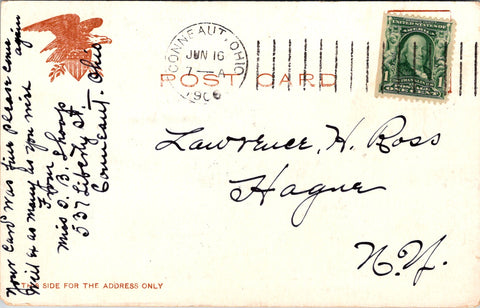 CONNEAUT, OHIO
JUN 16
7 — A
1906
POST CARD
UNITED STATES OF AMERICA
1
Lawrence H. Ross
Hague
N.Y.
Your card was fine please come again
as many as you
From
Miss O. B. Shoop
537 Liberty St.
Conneaut. Ohio
SIDE FOR THE ADDRESS ONLY